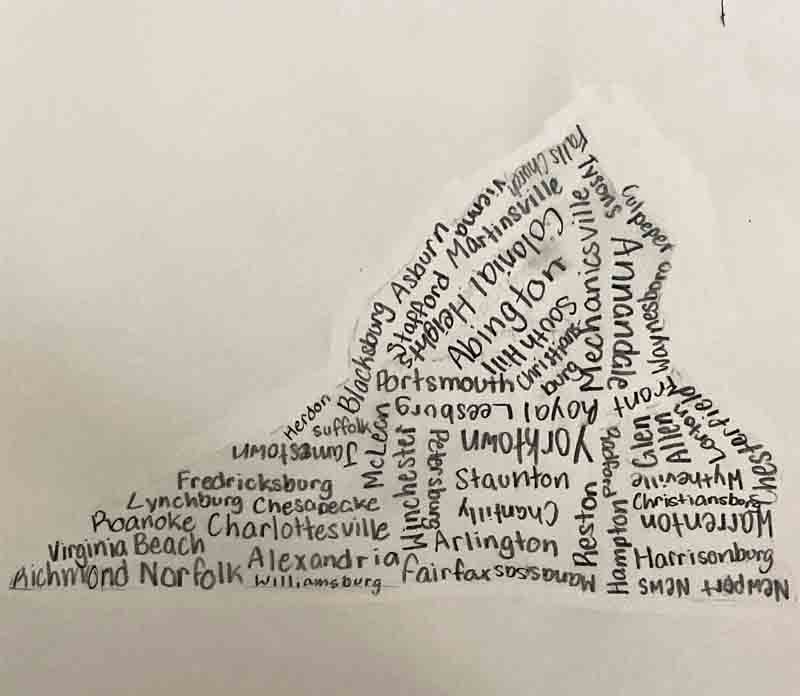 Falls Church
Tysons
Culpeper
Vienna
Martinsville
Asburn
Stafford
Colonial Heights
Abington
South Hill
Mechanicsville
Annandale
Waynesboro
Christiansburg
Blacksburg
Portsmouth
Herdon
Suffolk
Jamestown
McLean
Leesburg
Front Royal
Chesterfield
Lorton
Glen Allen
Winchester
Petersburg
Yorktown
Radford
Fredricksburg
Staunton
Wytheville
Lynchburg
Chesapeake
Chantilly
Christiansburg
Roanoke
Charlottesville
Reston
Warrenton
Virginia Beach
Arlington
Hampton
Harrisonburg
Richmond
Norfolk
Alexandria
Williamsburg
Fairfax
Manassas
Newport News